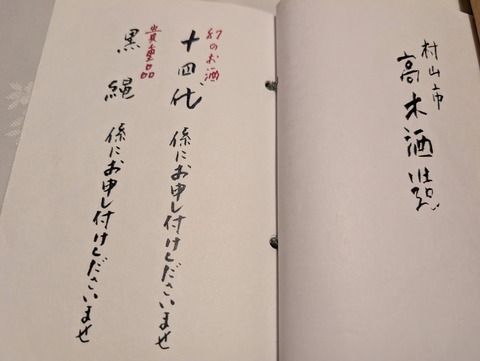 村山市
高木酒造
幻のお酒
十四代 係にお申し付けくださいませ
貴重品
黒縄 係にお申し付けくださいませ